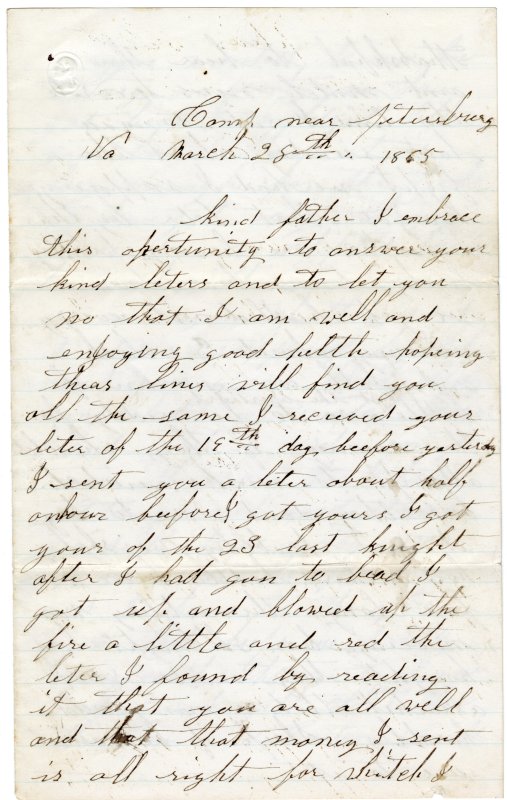 Camp near petersburg
Va March 28th 1865
kind father I embrace
this opertunity to answer your
kind leters and to let you
no that I am well and
enjoying good helth hopeing
theas lines will find you
all the same I recieved your
leter of the 19th day beefore yesterday
I sent you a leter about half
an hour beefore I got yours I got
yours of the 23 last knight
after I had gon to bead I
got up and blowed up the
fire a little and red the
leter I found by reading
it that you are all well
and that that money I sent
is all right for which I